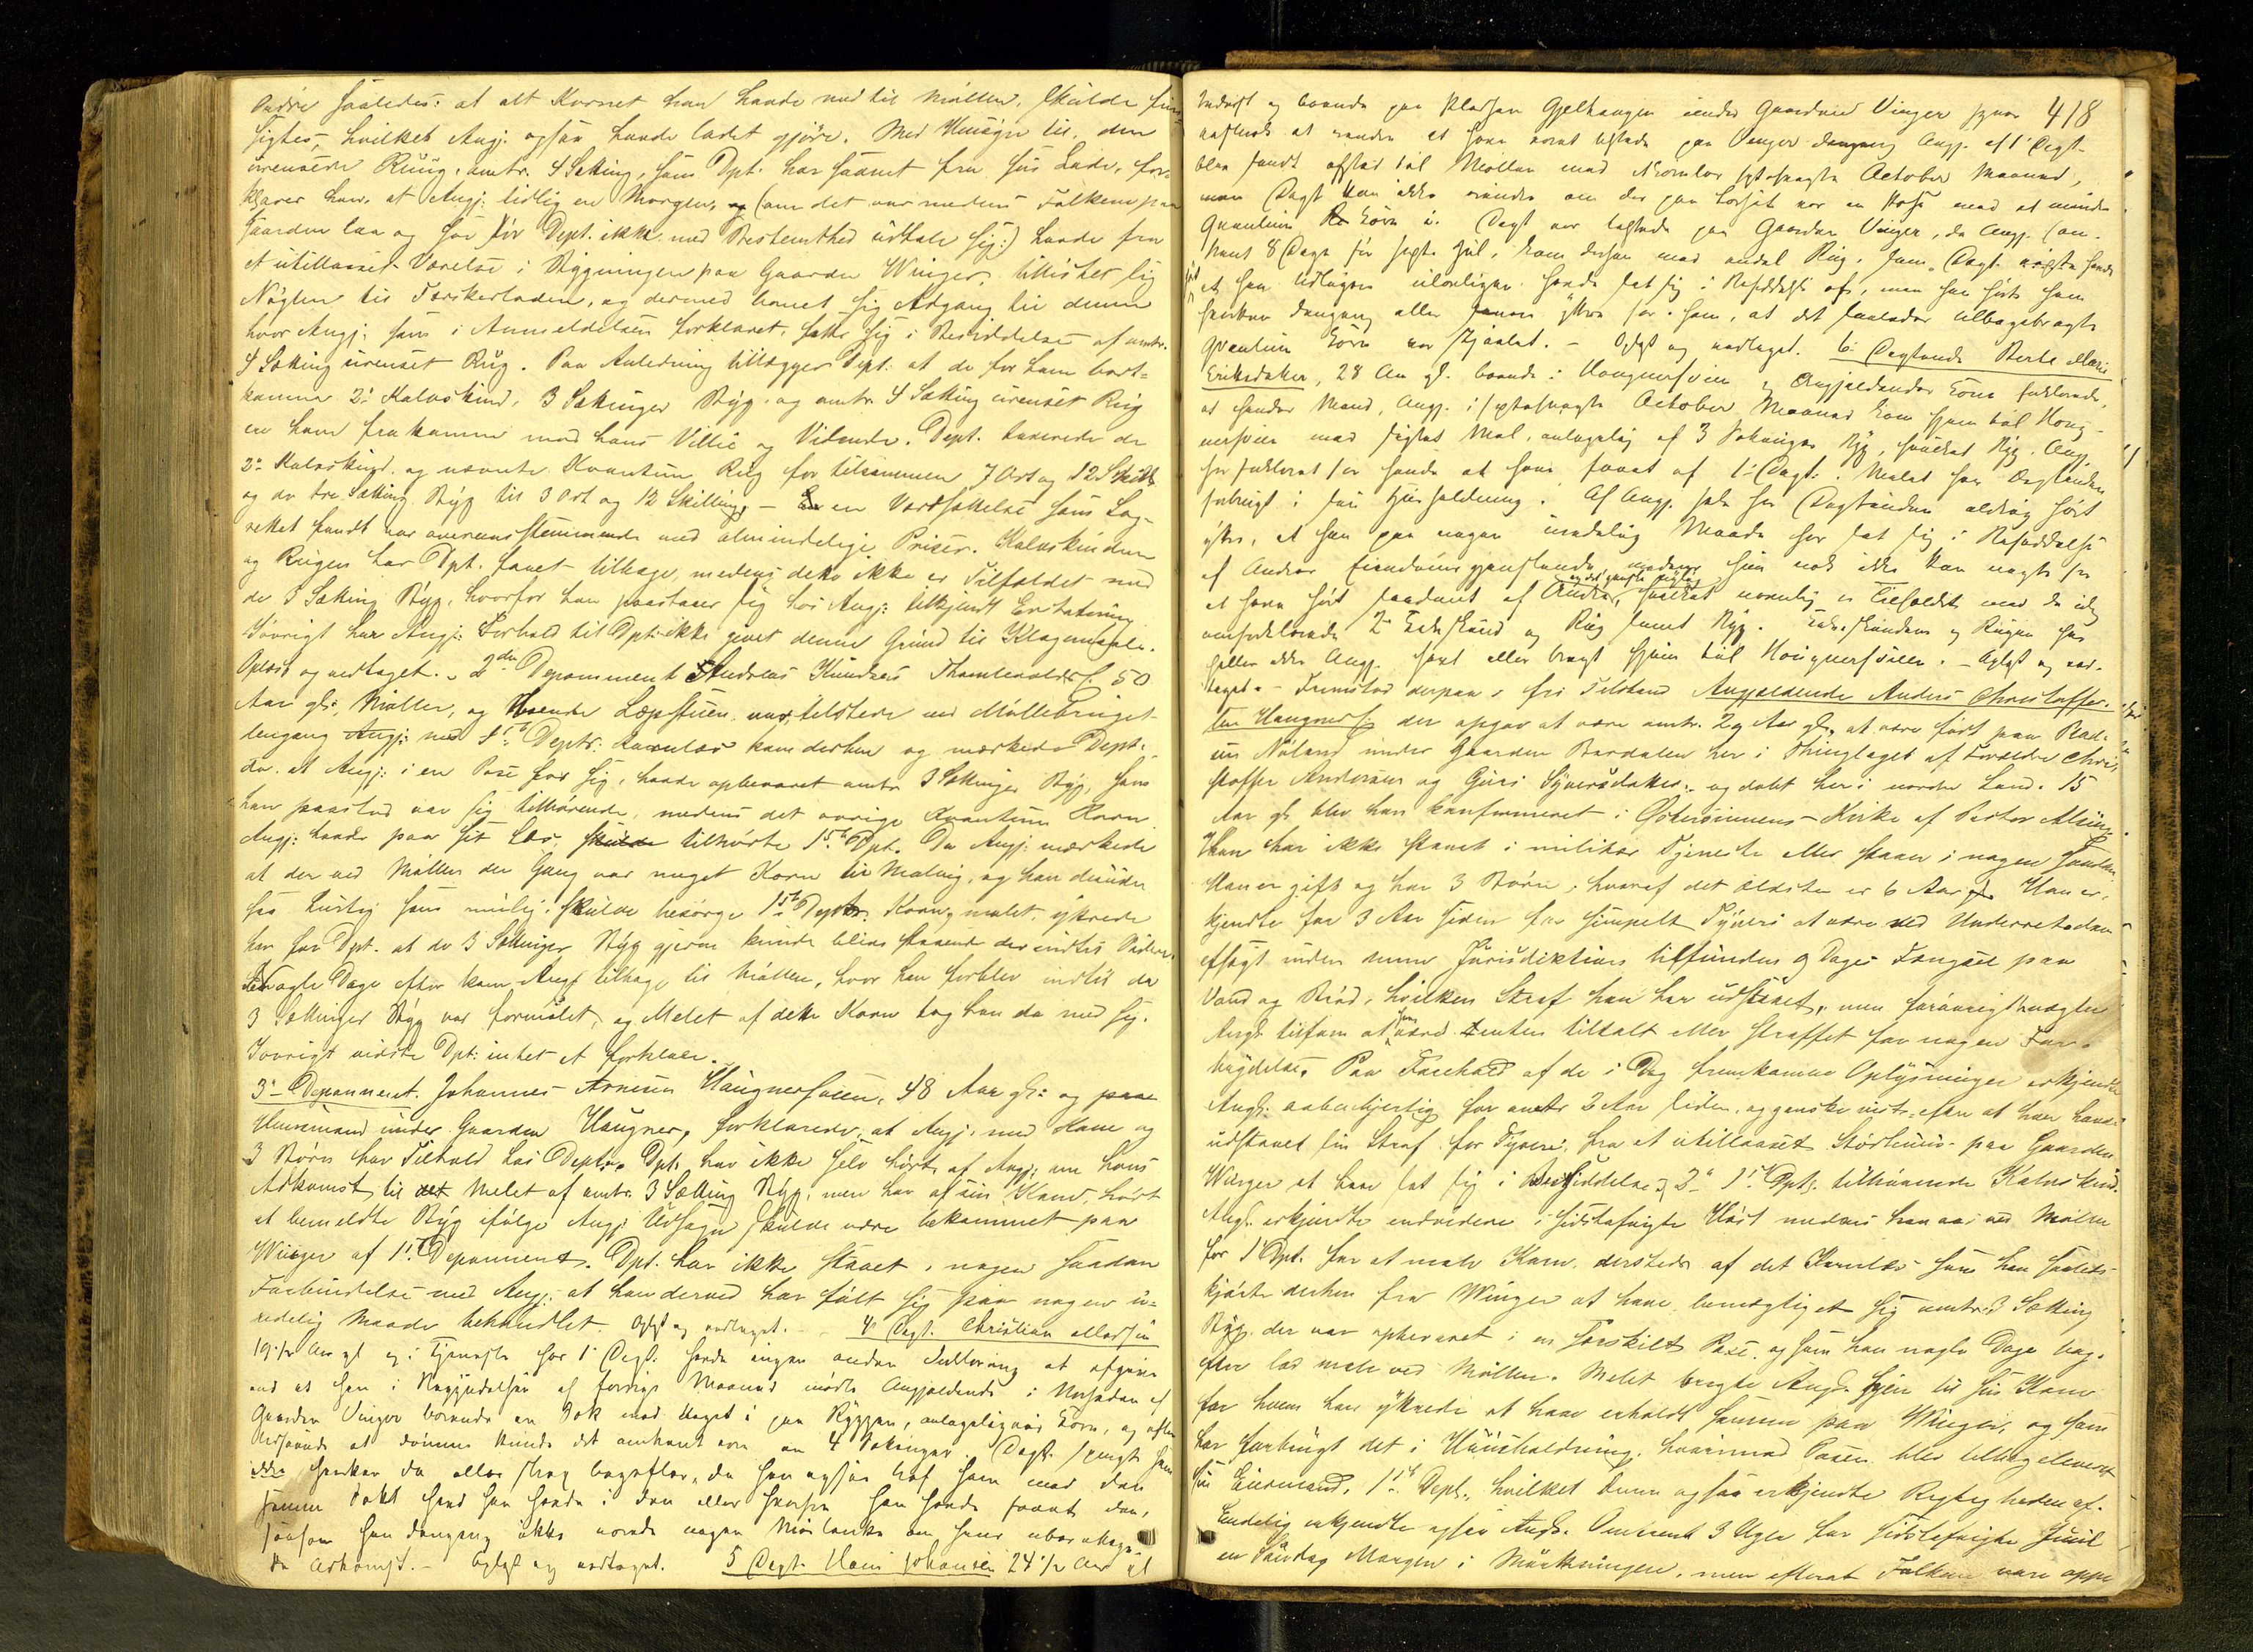 Andre saaledes: at alt Kornet han havde med til Møllen, skulde
sigtes, hvilket Angj: ogsaa havde ladet gjöre. Med Hensyn til den
urensede Rüug, omtr. 4 Sætting, som Dpt. har savnet fra sin Lade, for-
klarer han, at Angj: tidlig en Morgen, (om det var medens Folkene paa
Gaarden laa og sov tör Dept. ikke med Bestemthed udtale sig:) havde fra
et utillaaset Værelse i Bygningen paa Gaarden Winger, tillistet sig
Nøglen til Tærskerladen, og dermed banet sig Adgang til denne
hvor Angj: som i Anmeldelsen forklaret, satte sig i Besiddelse af omtr.
4 Sætting urenset Rüg. Paa Anledning tillægger Dept: at de for ham bort-
komne 2: Kalvskind, 3 Sættinger Byg, og omtr. 4 Sætting urenset Rug
ere ham frakomne mod hans Villie og Vidende. Dept. taxerede de
2: Kalvskind og nævnte Kvantum Rug for tilsammen 7 Ort og 12 Skill
og de tre Sætting Byg til 3 Ort og 12 Skilling, – en Værdsættelse som Lag-
rettet fandt var overensstemmende med almindelige Priser. Kalvskindene
og Rugen har Dpt. faaet tilbage, medens dette ikke er Tilfældet med
de 3 Sætting Byg, hvorfor han paastaaer sig hos Angj: tilkjendt Erstatning
Iøvrigt har Angj: Forhold til Dpt: ikke givet denne Grund til Klagemaale.
Oplæst og vedtaget. – 2den Deponment Andreas Knudsen 50
Aar gl:, Møller, og boende Læpstuen, var tilstede ved Møllebruget
dengang Angj: med 1ste Deptr: kornlæs kom derhen og mærkede Dept.
da, at Angj: i en Pose for sig, havde opbevaret omtr. 3 Sættinger Byg, som
han paastod var sig tilhørende, medens det øvrige Kvantum Korn
Angj: havde paa sit Læs, tilhørte 1ste Dpt. Da Angj: mærkede
at der ved Møllen den Gang var meget Korn til Maling, og han desuden
saa hurtig som mulig skulde besørge 1ste Dptr. Korn malet, yttrede
han for Dpt. at de 3 Sættinger Byg gjerne kunde blive staaende der indtil
Nogle Dage efter kom Angj tilbage til Møllen, hvor han forblev indtil de
3 Sættinger Byg var formalet, og Melet af dette Korn tog han da med sig.
Iøvrigt vidste Dpt: intet at forklare.
3: Deponnent. Johannes Arnesen Haugnersveen, 48 Aar gl: og
Huusmand under Gaarden Haugner, forklarede, at Angj: med Kone og
3 Børn har Tilhold hos Deptr. Dpt. har ikke selv hørt af Angj: om hans
Adkomst til Melet af omtr. 3 Sætting Byg, men har af sin Kone hørt
at bemeldte Byg ifølge Angj: Udsagn skulde være bekommet paa
Winger af 1ste Deponnent. Dpt. har ikke staaet i nogen saadan
Forbindelse med Angj. at han derved har følt sig paa nogen u-
redelig Maade behandlet. Oplæst og vedtaget. – 4: Dept. Christian
19 1/2 Aar gl og i Tjeneste hos 1: Dept: havde ingen anden Forklaring at afgive
end at han i Begyndelsen af forrige Maaned mødte Angjeldende i Nærheden af
Gaarden Vinger bærende en Sæk med Noget i paa Ryggen, antagelig Korn, og efter
Udseende at dømme kunde det omtrent være 4 Sættinger. Dept. spurgte ham
ikke hverken da eller strax bagefter, da han ogsaa traf ham med den
samme Sæk hvad han havde i den eller hvorfra han havde faaet den,
saasom han dengang ikke nærede nogen Mistanke om hans uberettige-
de Adkomst. – Oplæst og vedtaget. 5 Dept. Hans Johansen 24 1/2 Aar gl
418
og boende paa Pladsen Gjelhaugen under Gaarden Vinger
at have været tilstede paa Vinger dengang Angj. af 1: Dept.
blev sendt afsted til Møllen med Kornlæs sidstafvigte October Maaned,
men Dept kan ikke erindre om der paa Læsset var en Pose med et mindre
Quantum Korn i. Dept var tilstede paa Gaarden Vinger, da Angj. (om-
trent 8 Dage før sidste Jul, kom dersen med endel Rug, som Dept. vidste
at han tidligere ulovligen havde sat sig i Besiddelse af, men han hørte ham
hverken dengang eller senere yttre for ham, at det saaledes tilbagebragte
Quantum Korn var stjaalet. – Oplæst og vedtaget. 6: Deptinde Berte Marie
Eriksdatter, 28 Aar gl. boende i Haugnersveen og Angjældendes Kone forklarede,
at hendes Mand, Angj. i sidstafvigte October Maaned kom hjem til Haug-
nersveen med sigtet Mel, antagelig af 3 Sættinger Byg, hvilket Byg Angj.
har forklaret for hende at have faaet af 1: Dept: Melet har Deptinden
forbrugt i sin Huusholdning. Af Angj. selv har Deptinden aldrig hørt
yttre, at han paa nogen uredelig Maade har sat sig i Besiddelse
af Andres Eiendomsgjenstande, medens hun nok ikke kan nægte for
at have hørt saadant af Andre, og det ganske nylig, hvilket navnlig er Tilfældet med de idag
omforklarede 2 Kalveskind og Rug samt Byg. Kalveskindene og Rugen har
heller ikke Angj. havt eller bragt hjem til Haugnersveen. – Oplæst og ved-
taget. – Fremstod derpaa i fri Tilstand Angjeldende Anders Christoffer-
sen Haugnersv: der opgav at være omtr. 29 Aar gl, at være født paa
Nøland under Gaarden Bardalen her i Thinglaget af Forældre Chris-
stoffer Andersen og Guri Syversdatter, og døbt her i nordre Land. 15
Aar gl blev han konfirmeret i Østsinnens Kirke af Pastor
Han har ikke staaet i militær Tjeneste eller staar i nogen saadan.
Han er gift og har 3 Børn, hvoraf det ældste er 6 Aar gl. Han er-
kjendte for 3 Aar siden for simpelt Tyveri at være ved Underretsdom
afsagt inden denne Jurisdiktion tilfunden 9 Dages Fængsel paa
Vand og Brød, hvilken Straf han har udstaaet, men forøvrigt benægter
Angj. tilsam at have været enten tiltalt eller straffet for nogen For-
brydelse. Paa Forehold af de i Dag fremkomne Oplysninger erkjendte
Angj. aabenhjertig for omtr 2 Aar siden, og ganske vist efter at han havde
udstaaet sin Straf for Tyveri, fra et utillaaset Stødhuus paa Gaarden
Winger at have sat sig i Besiddelse af 2: 1ste Dpts. tilhørende Kalveskind.
Angj. erkjendte endvidere i sidstafvigte Høst medens han var ved Møllen
for 1: Dpt. for at male Korn, dersteds af det Kornlæs som han saaledes
kjørte derhen fra Winger at have bemægtiget sig omtr. 3 Sætting
Byg, der var opbevaret i en særskilt Pose, og som han nogle Dage bag-
efter lod male ved Møllen. Melet bragte Angj. hjem til sin Kone
for hvem han yttrede at have erholdt samme paa Winger, og som
har forbrugt det i Huusholdning, hvorimod Posen blev tilbageleveret
sin Eiermand, 1ste Dept., hvilket denne ogsaa erkjendte Rigtigheden af.
Endelig erkjendte ogsaa Angj. Omtrent 3 Uger før sidstafvigte Juul
en Søndag Morgen i Mørkningen, men efterat Folkene vare oppe